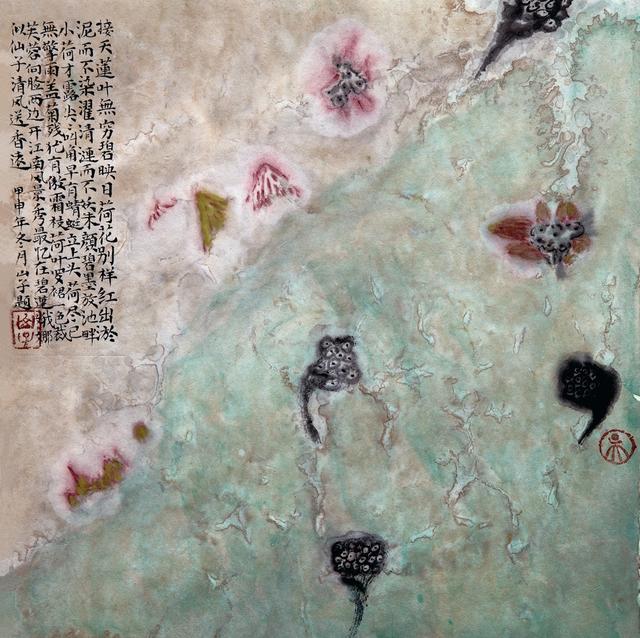 接天蓮叶無穷碧映日荷花别樣红出淤
泥而不染濯清漣而不妖未碧放池畔
小荷才露尖尖角早有蜻蜓立上头荷尽已
無擎雨盖菊残犹有傲霜枝荷叶罗裙一色裁
芙蓉向脸两边开江南風景秀最忆在碧蓮娜
似仙子清風送香遠 甲申年冬月山子題